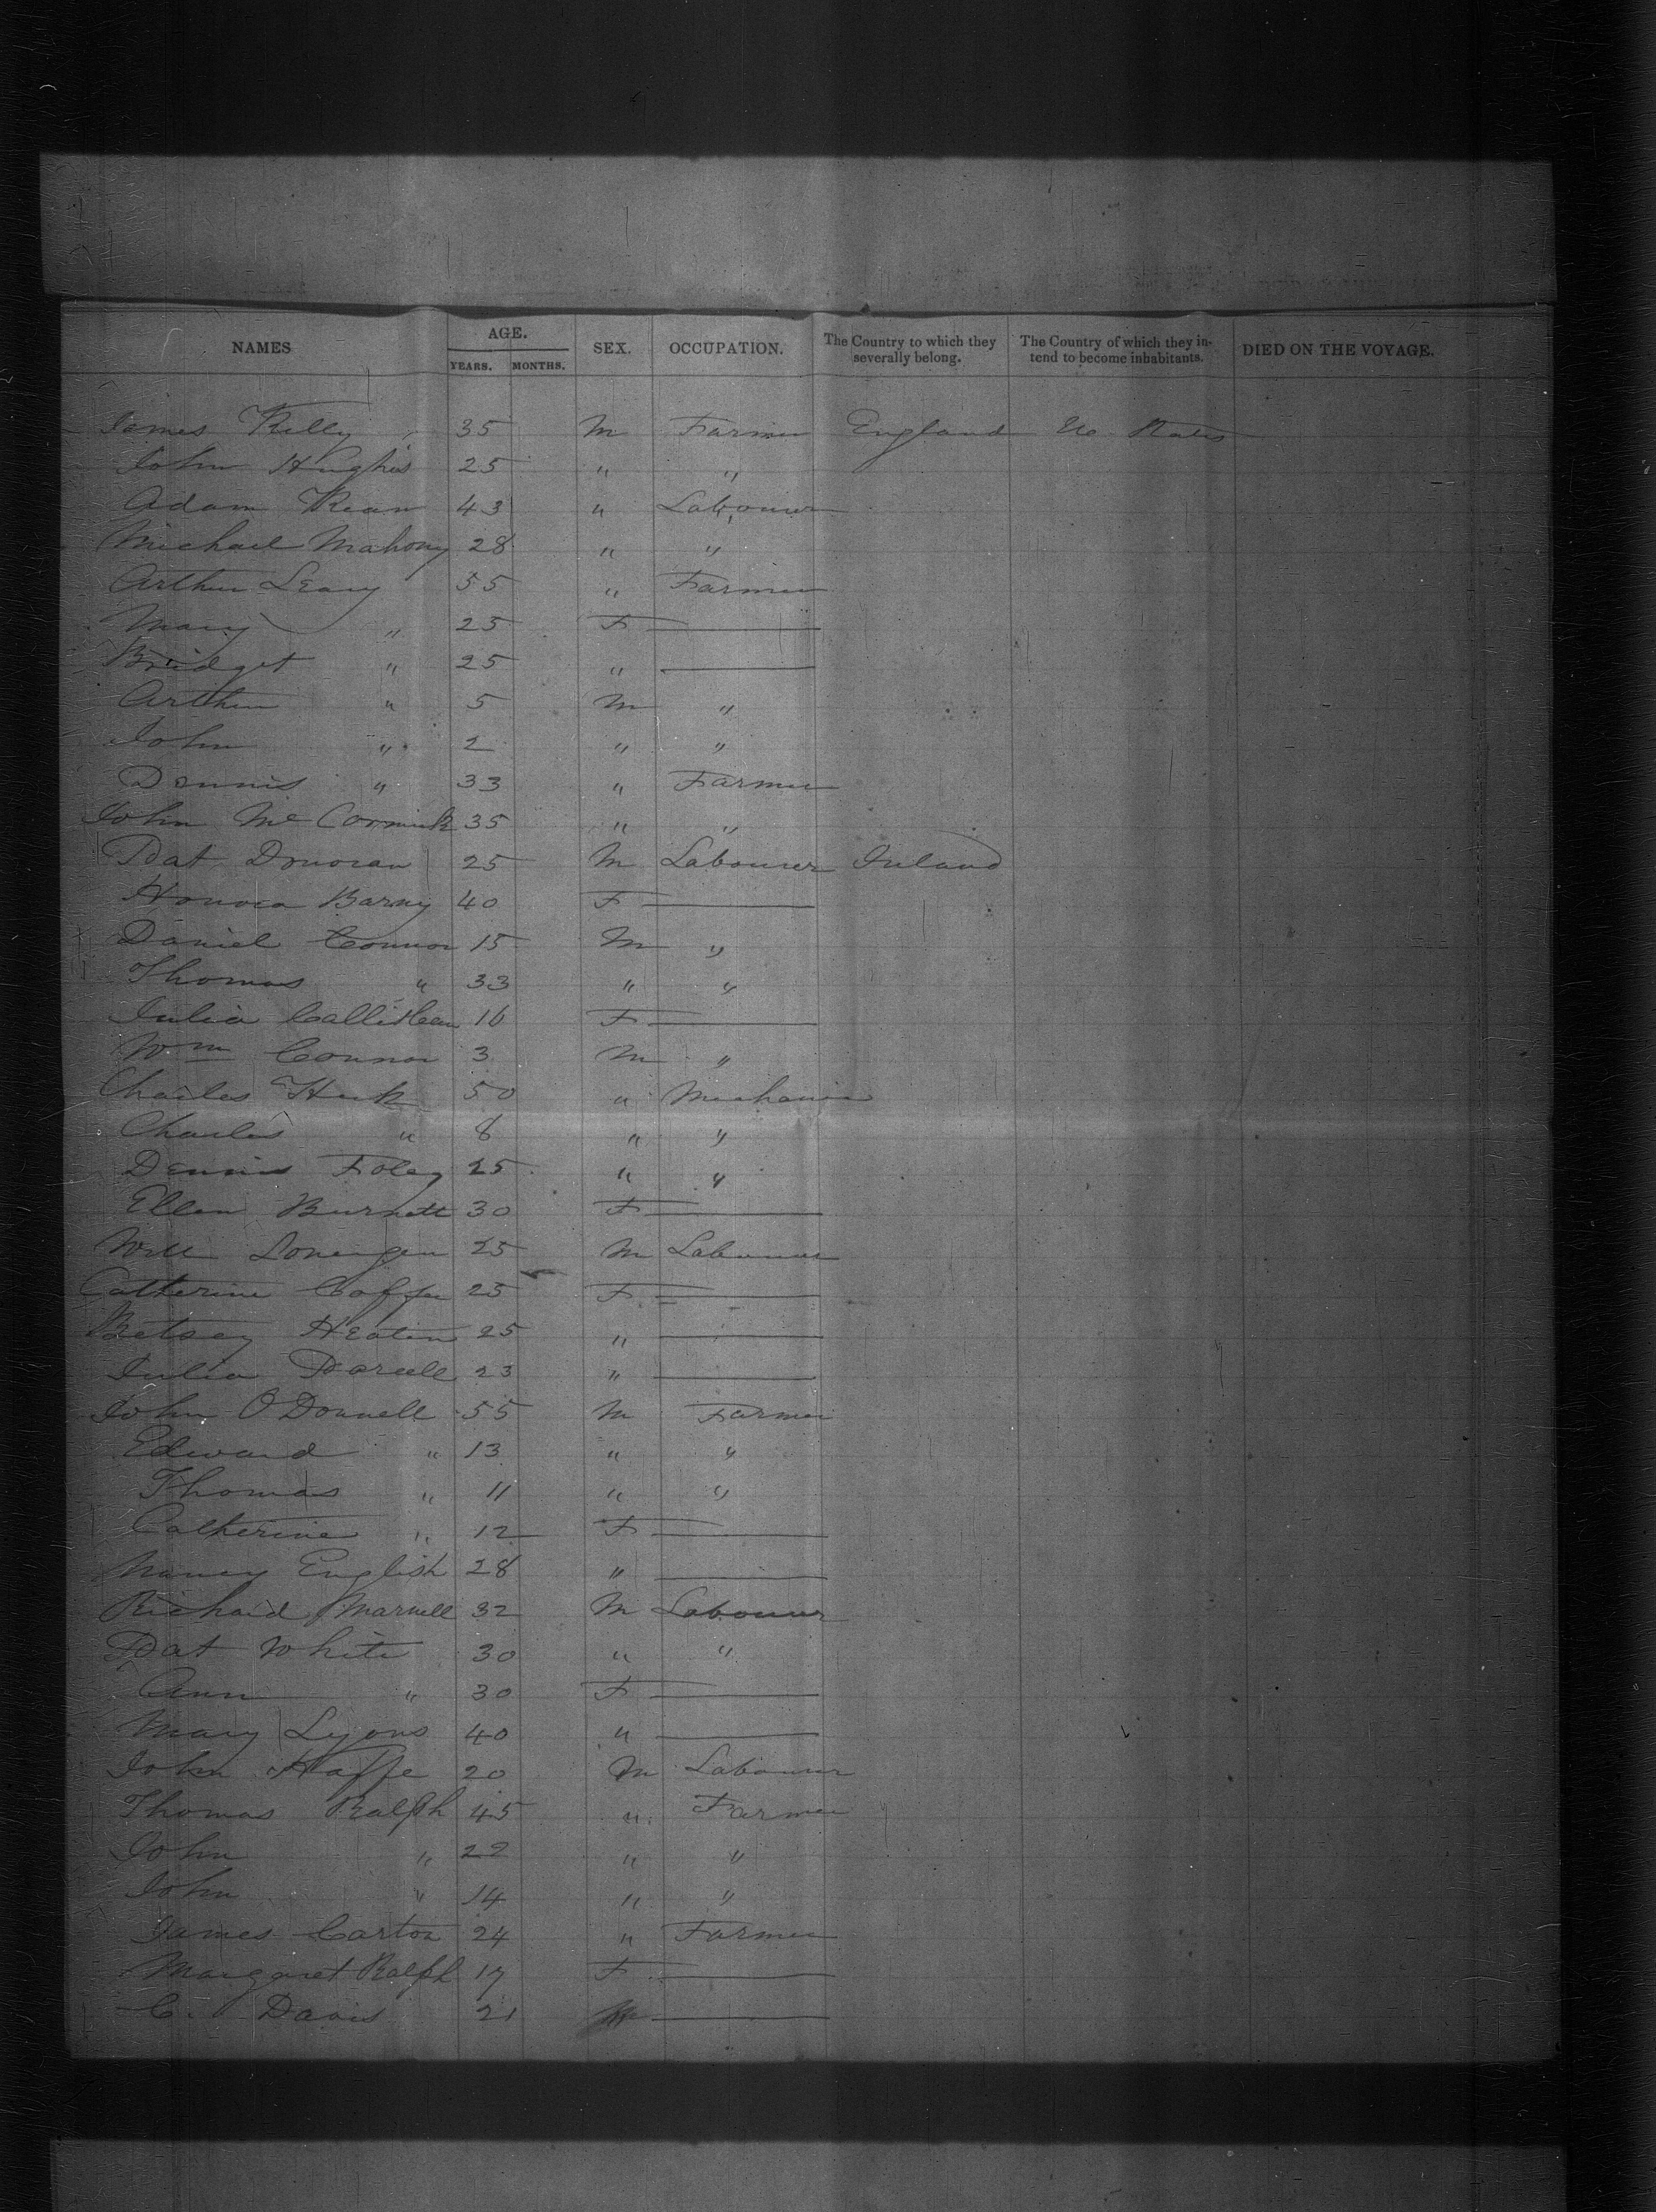 NAMES AGE. YEARS. MONTHS. SEX. OCCUPATION. The Country to which they severally belong. The Country of which they intend to become inhabitants. DIED ON THE VOYAGE.
James Kelly 35 M Farmer England U. States
John Hughes 25 " "
Adam Kean 43 " Labourer
Michael Mahony 28 " "
Arthur Leary 55 " Farmer
Mary " 25 F —
Bridget " 25 " —
Arthur " 5 M "
John " 2 " "
Dennis " 33 " Farmer
John McCormick 35 " "
Pat Donovan 25 M Labourer Ireland
Honora Barny 40 F —
Daniel Connor 15 M "
Thomas " 33 " "
Julia 16 F —
Wm Connor 3 M "
Charles 50 " Mechanic
Charles " 8 " "
Dennis Foley 25 " "
Ellen Burnett 30 F —
Will Lonergan 25 M Labourer
Catherine 25 F —
Betsey Heaten 25 " —
Julia 23 " —
John O'Donnell 55 M Farmer
Edward " 13 " "
Thomas " 11 " "
Catherine " 12 F —
Nancy English 28 " —
Richard Marnell 32 M Labourer
Pat White 30 " "
Ann " 30 F —
Mary Lyons 40 " —
John 20 M Labourer
Thomas Ralph 45 " Farmer
John " 22 " "
John " 14 " "
James Carton 24 " Farmer
Margaret Ralph 17 F —
C. Davis 21 —